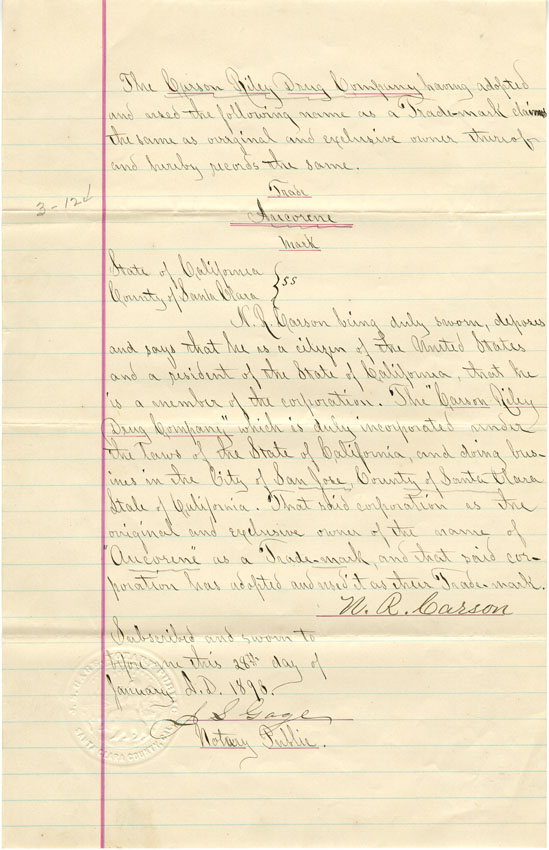 The Carson Riley Drug Company having adopted
and used the following name as a Trade-mark claims
the same as original and exclusive owner thereof
and hereby records the same.
Trade
3-12
Aucorene
Mark
State of California
County of Santa Clara } ss
N. R. Carson being duly sworn, deposes
and says that he is a citizen of the United States
and a resident of the State of California, that he
is a member of the corporation. The "Carson Riley
Drug Company" which is duly incorporated under
the Laws of the State of California, and doing bus-
ines in the City of San Jose, County of Santa Clara
State of California. That said corporation is the
original and exclusive owner of the name of
"Aucorene" as a Trade-mark, and that said cor-
poration has adopted and used it as their Trade-mark.
N. R. Carson
Subscribed and sworn to
before me this 28th day of
January A.D. 1893.
J S Gage
Notary Public.